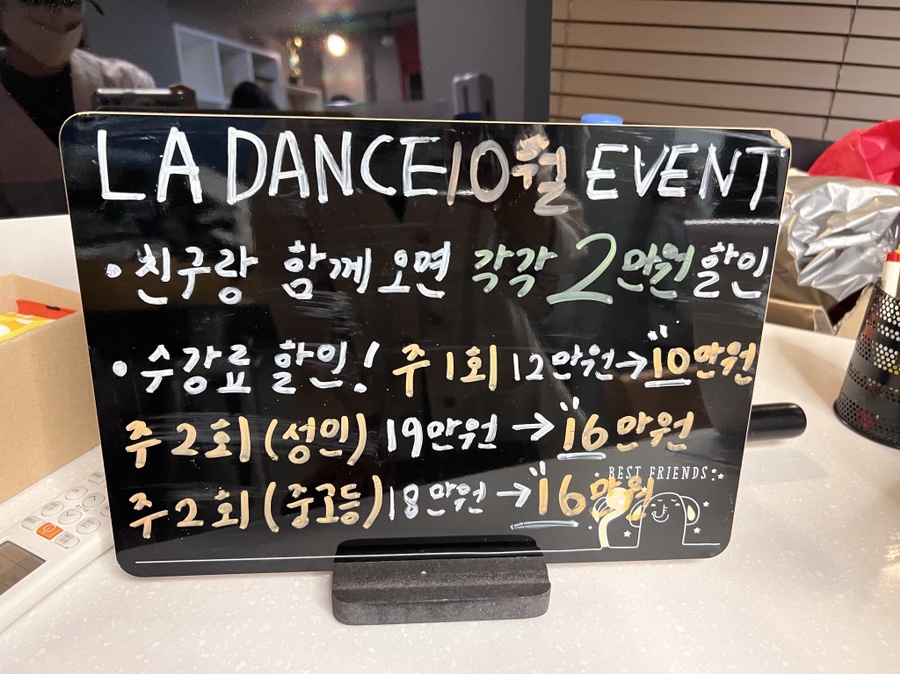 LA DANCE 10월 EVENT
• 친구랑 함께 오면 각각 2만원 할인
• 수강료 할인! 주1회 12만원→10만원
주2회(성인) 19만원→16만원
주2회(중고등) 18만원→16만원
BEST FRIENDS